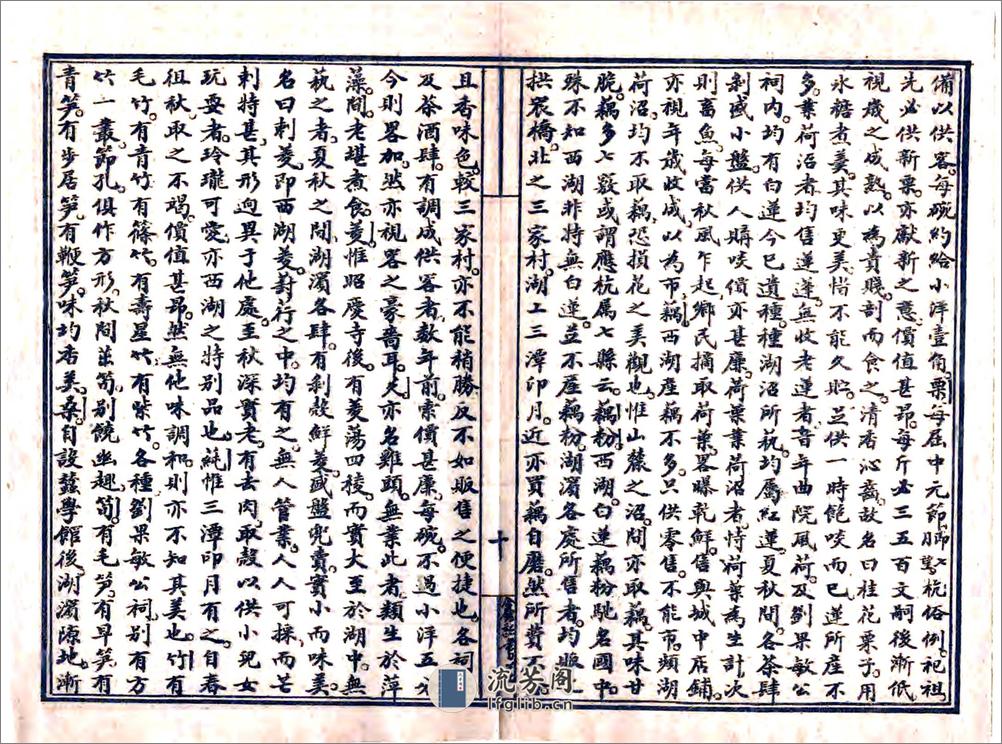 備以供客。每碗約給小洋壹角。栗。每屆中元節。杭俗例。祀祖
先。必供新栗。亦獻新之意。價值甚昂。每斤必三五百文。嗣後漸低。
視歲之成熟。以為貴賤。剖而食之。清香沁齒。故名曰桂花栗子。用
冰糖煮羹。其味更美。惜不能久貯。祇供一時飽啖而已。蓮。所產不
多。業荷沼者。均售蓮蓬。無收老蓮者。昔年曲院風荷。及劉果敏公
祠內。均有白蓮。今已遺種。種湖沼所蓺。均屬紅蓮。夏秋間。各茶肆
剝盛小盤。供人購啖。價亦甚廉。荷葉。業荷沼者。恃荷葉為生計。次
則畜魚。每當秋風乍起。鄉民摘取荷葉。畧曝乾。鮮售與城中店鋪。
亦視年歲收成。以為市。藕。西湖產藕不多。只供零售。不能市。頻湖
荷沼。均不取藕。恐損花之美觀也。惟山麓之沼。間亦取藕。其味甘
脆。藕多七竅。或謂應杭屬七縣云。藕粉。西湖白蓮藕粉。馳名國中。
殊不知西湖非特無白蓮。並不產藕粉。湖濱各處所售者。均販之
拱宸橋北之三家村。湖上三潭印月。近亦買藕自磨。然所費不
且香味色。較三家村。亦不能稍勝。反不如販售之便捷也。各祠
及茶酒肆。有調成供客者。數年前。索價甚廉。每碗不過小洋五分。
今則畧加。然亦視客之豪嗇耳。芡。亦名雞頭。無業此者。類生於萍
藻間。老堪煮食。菱。惟昭慶寺後。有菱蕩四稜。而實大。至於湖中。無
蓺之者。夏秋之間。湖濱各肆。有剝殼鮮菱。盛盤兜賣。實小而味美。
名曰刺菱。即西湖菱。葑行之中。均有之。無人管業。人人可採。而芒
刺特甚。其形迥異于他處。至秋深實老。有去肉取殼。以供小兒女
玩耍者。玲瓏可愛。亦西湖之特别品也。蒓。惟三潭印月有之。自春
徂秋。取之不竭。價值甚昂。然無他味調和。則亦不知其美也。竹。有
毛竹。有青竹。有篠竹。有壽星竹。有紫竹。各種。劉果敏公祠。别有方
竹一叢。節孔俱作方形。秋間茁筍。别饒幽趣。筍。有毛筍。有早筍。有
青筍。有步居筍。有鞭筍。味均香美。桑。自設蠶學館後。湖濱隙地。漸
十
流芳阁
lfglib.cn